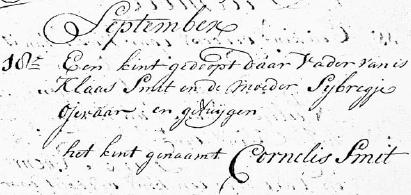 September
18e Een kint gedoopt daar Vader van is
Klaas Smit en de Moeder Sybregje
en getuygen
het kint genaamt Cornelis Smit